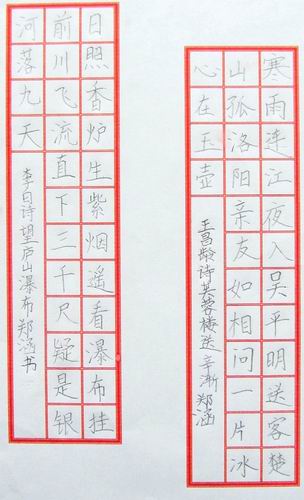 寒雨连江夜入吴平明送客楚
山孤洛阳亲友如相问一片冰
心在玉壶
王昌龄诗芙蓉楼送辛渐郑涵
日照香炉生紫烟遥看瀑布挂
前川飞流直下三千尺疑是银
河落九天
李白诗望庐山瀑布郑涵书